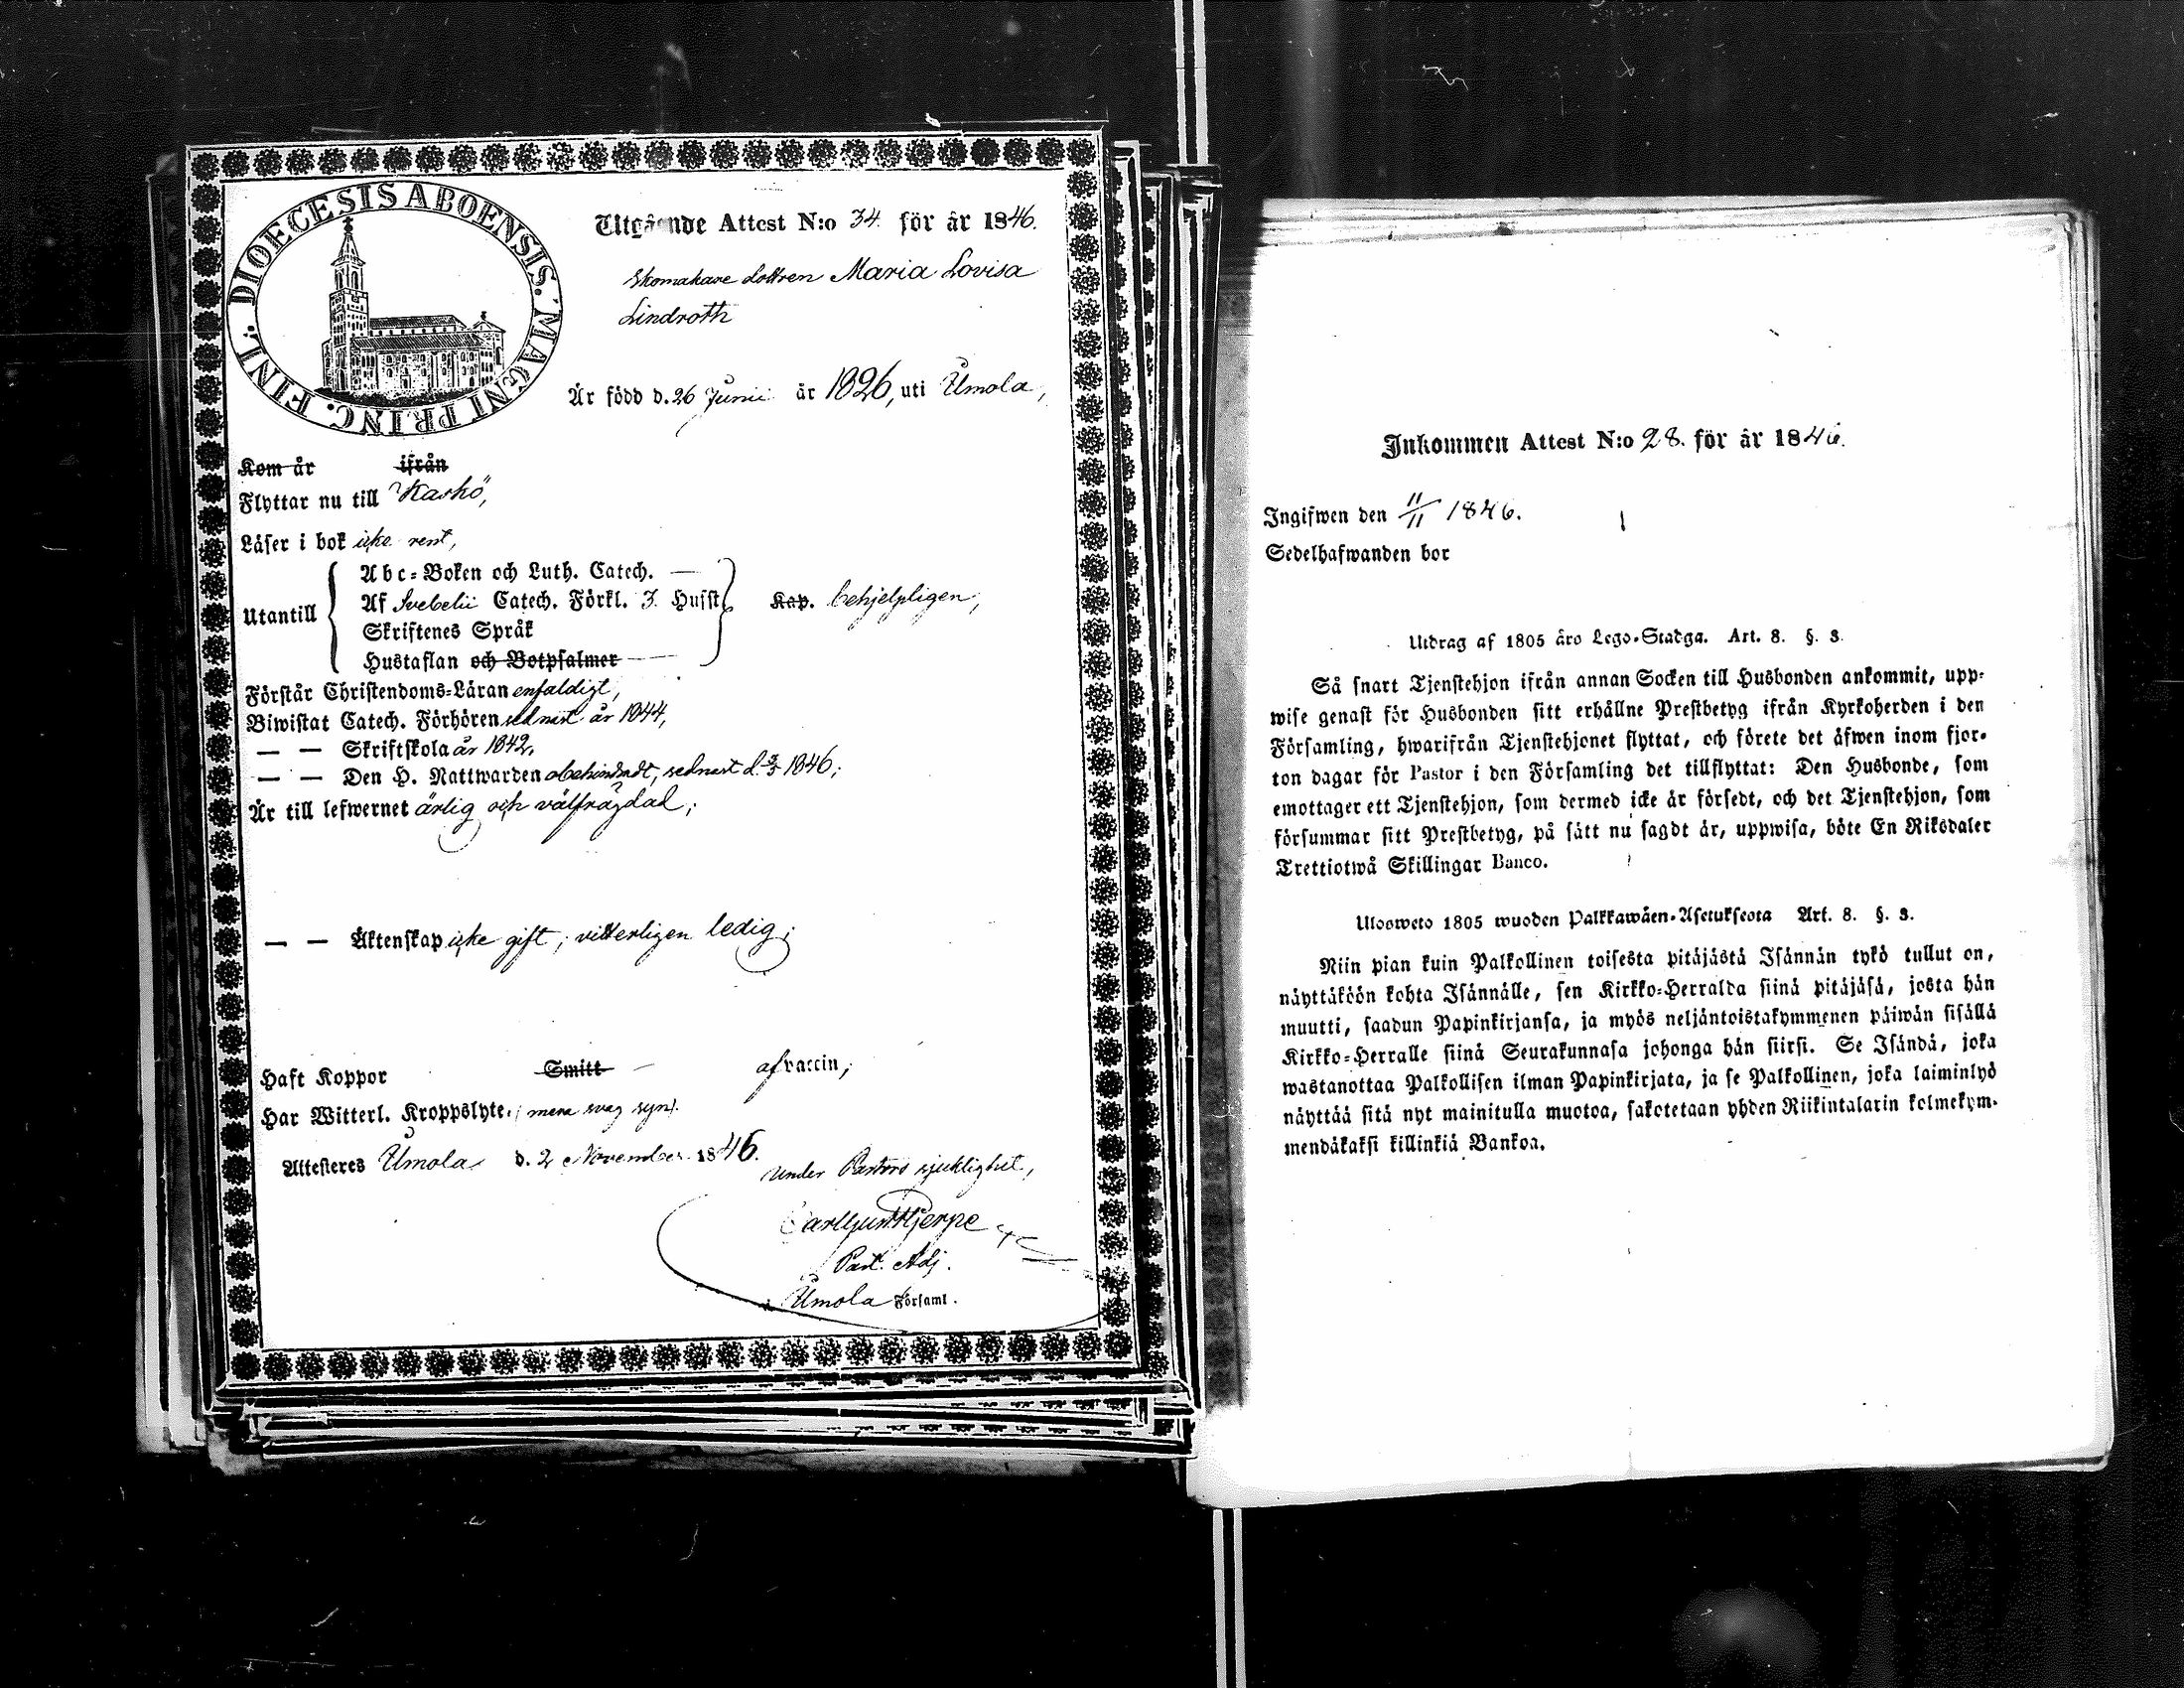 DIOECESIS ABOENSIS. MAGNI PRINC. FINL.
Utgående Attest N:o 34. för år 1846.
Skomakare dottren Maria Lovisa
Lindroth
Är född d. 26 Junii år 1826, uti Umola,
Kom år ifrån
Flyttar nu till Kaskö,
Läser i bok icke rent,
Utantill
Abc-Boken och Luth. Catech. —
Af Svebelii Catech. Förkl. 3. Husst
Skriftenes Språk
Hustaflan och Botpsalmer —
Kap. behjelpligen,
Förstår Christendoms-Läran enfaldigt,
Biwistat Catech. Förhören sednast år 1844,
— — Skriftskola år 1842,
— — Den H. Nattwarden obehindradt, sednast d. 3/5 1846;
Är till lefwernet ärlig och välfrägdad;
— — Äktenskap icke gift, vitterligen ledig;
Haft Koppor Smitt — af vaccin,
Har Witterl. Kroppslyte. mera svag synt.
Attesteres Umola d. 2 November 1846.
under Pastors sjuklighet,
Hjerpe
Past. Adj.
i Umola Församl.
Inkommen Attest N:o 28. för år 1846.
Ingifwen den 11/11 1846.
Sedelhafwanden bor
Utdrag af 1805 års Lego-Stadga. Art. 8. §. 3.
Så snart Tjenstehjon ifrån annan Socken till Husbonden ankommit, upp-
wise genast för Husbonden sitt erhållne Prestbetyg ifrån Kyrkoherden i den
Församling, hwarifrån Tjenstehjonet flyttat, och förete det äfwen inom fjor-
ton dagar för Pastor i den Församling det tillflyttat: Den Husbonde, som
emottager ett Tjenstehjon, som dermed icke är försedt, och det Tjenstehjon, som
försummar sitt Prestbetyg, på sätt nu sagdt är, uppwisa, böte En Riksdaler
Trettiotwå Skillingar Banco.
Ulosweto 1805 wuoden Palkkawäen-Asetuksesta Art. 8. §. 3.
Niin pian kuin Palkollinen toisesta pitäjästä Isännän tykö tullut on,
näyttäköön kohta Isännälle, sen Kirkko-Herralda siinä pitäjäsä, josta hän
muutti, saadun Papinkirjansa, ja myös neljäntoistakymmenen päiwän sisällä
Kirkko-Herralle siinä Seurakunnasa johonga hän siirsi. Se Isändä, joka
wastanottaa Palkollisen ilman Papinkirjata, ja se Palkollinen, joka laiminlyö
näyttää sitä nyt mainitulla muotoa, sakotetaan yhden Riikintalarin kolmekym-
mendäkaksi killinkiä Bankoa.